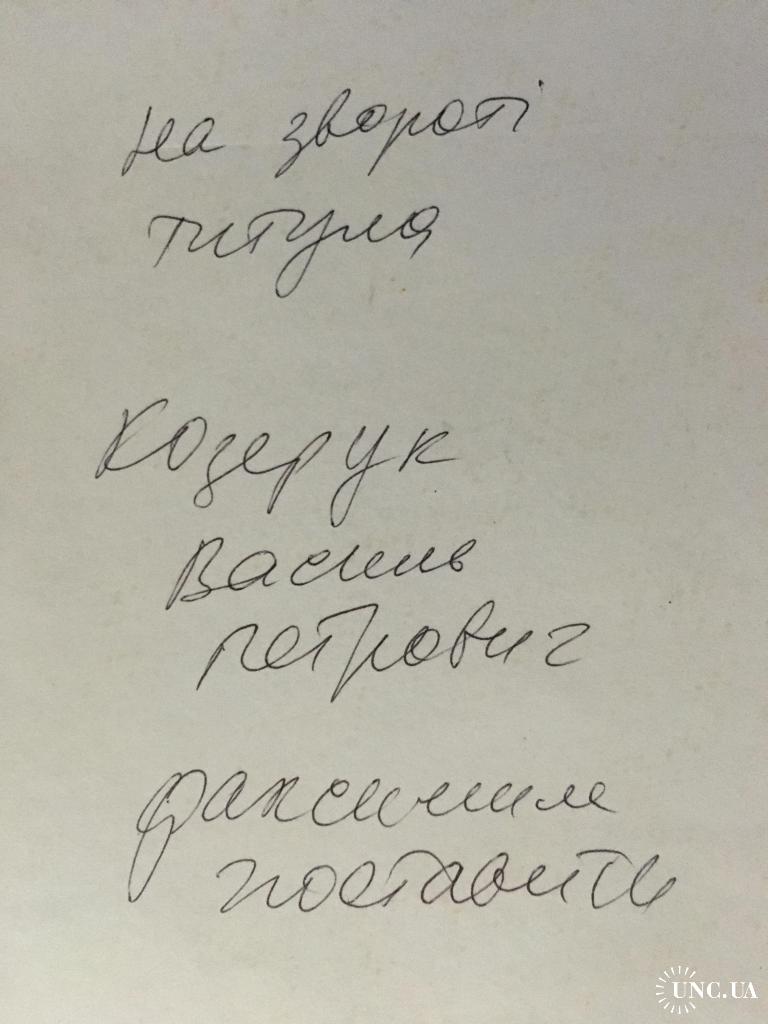 на звороті
титула
Козерук
Василь
Петрович
факсиміле
поставити
UNC.UA